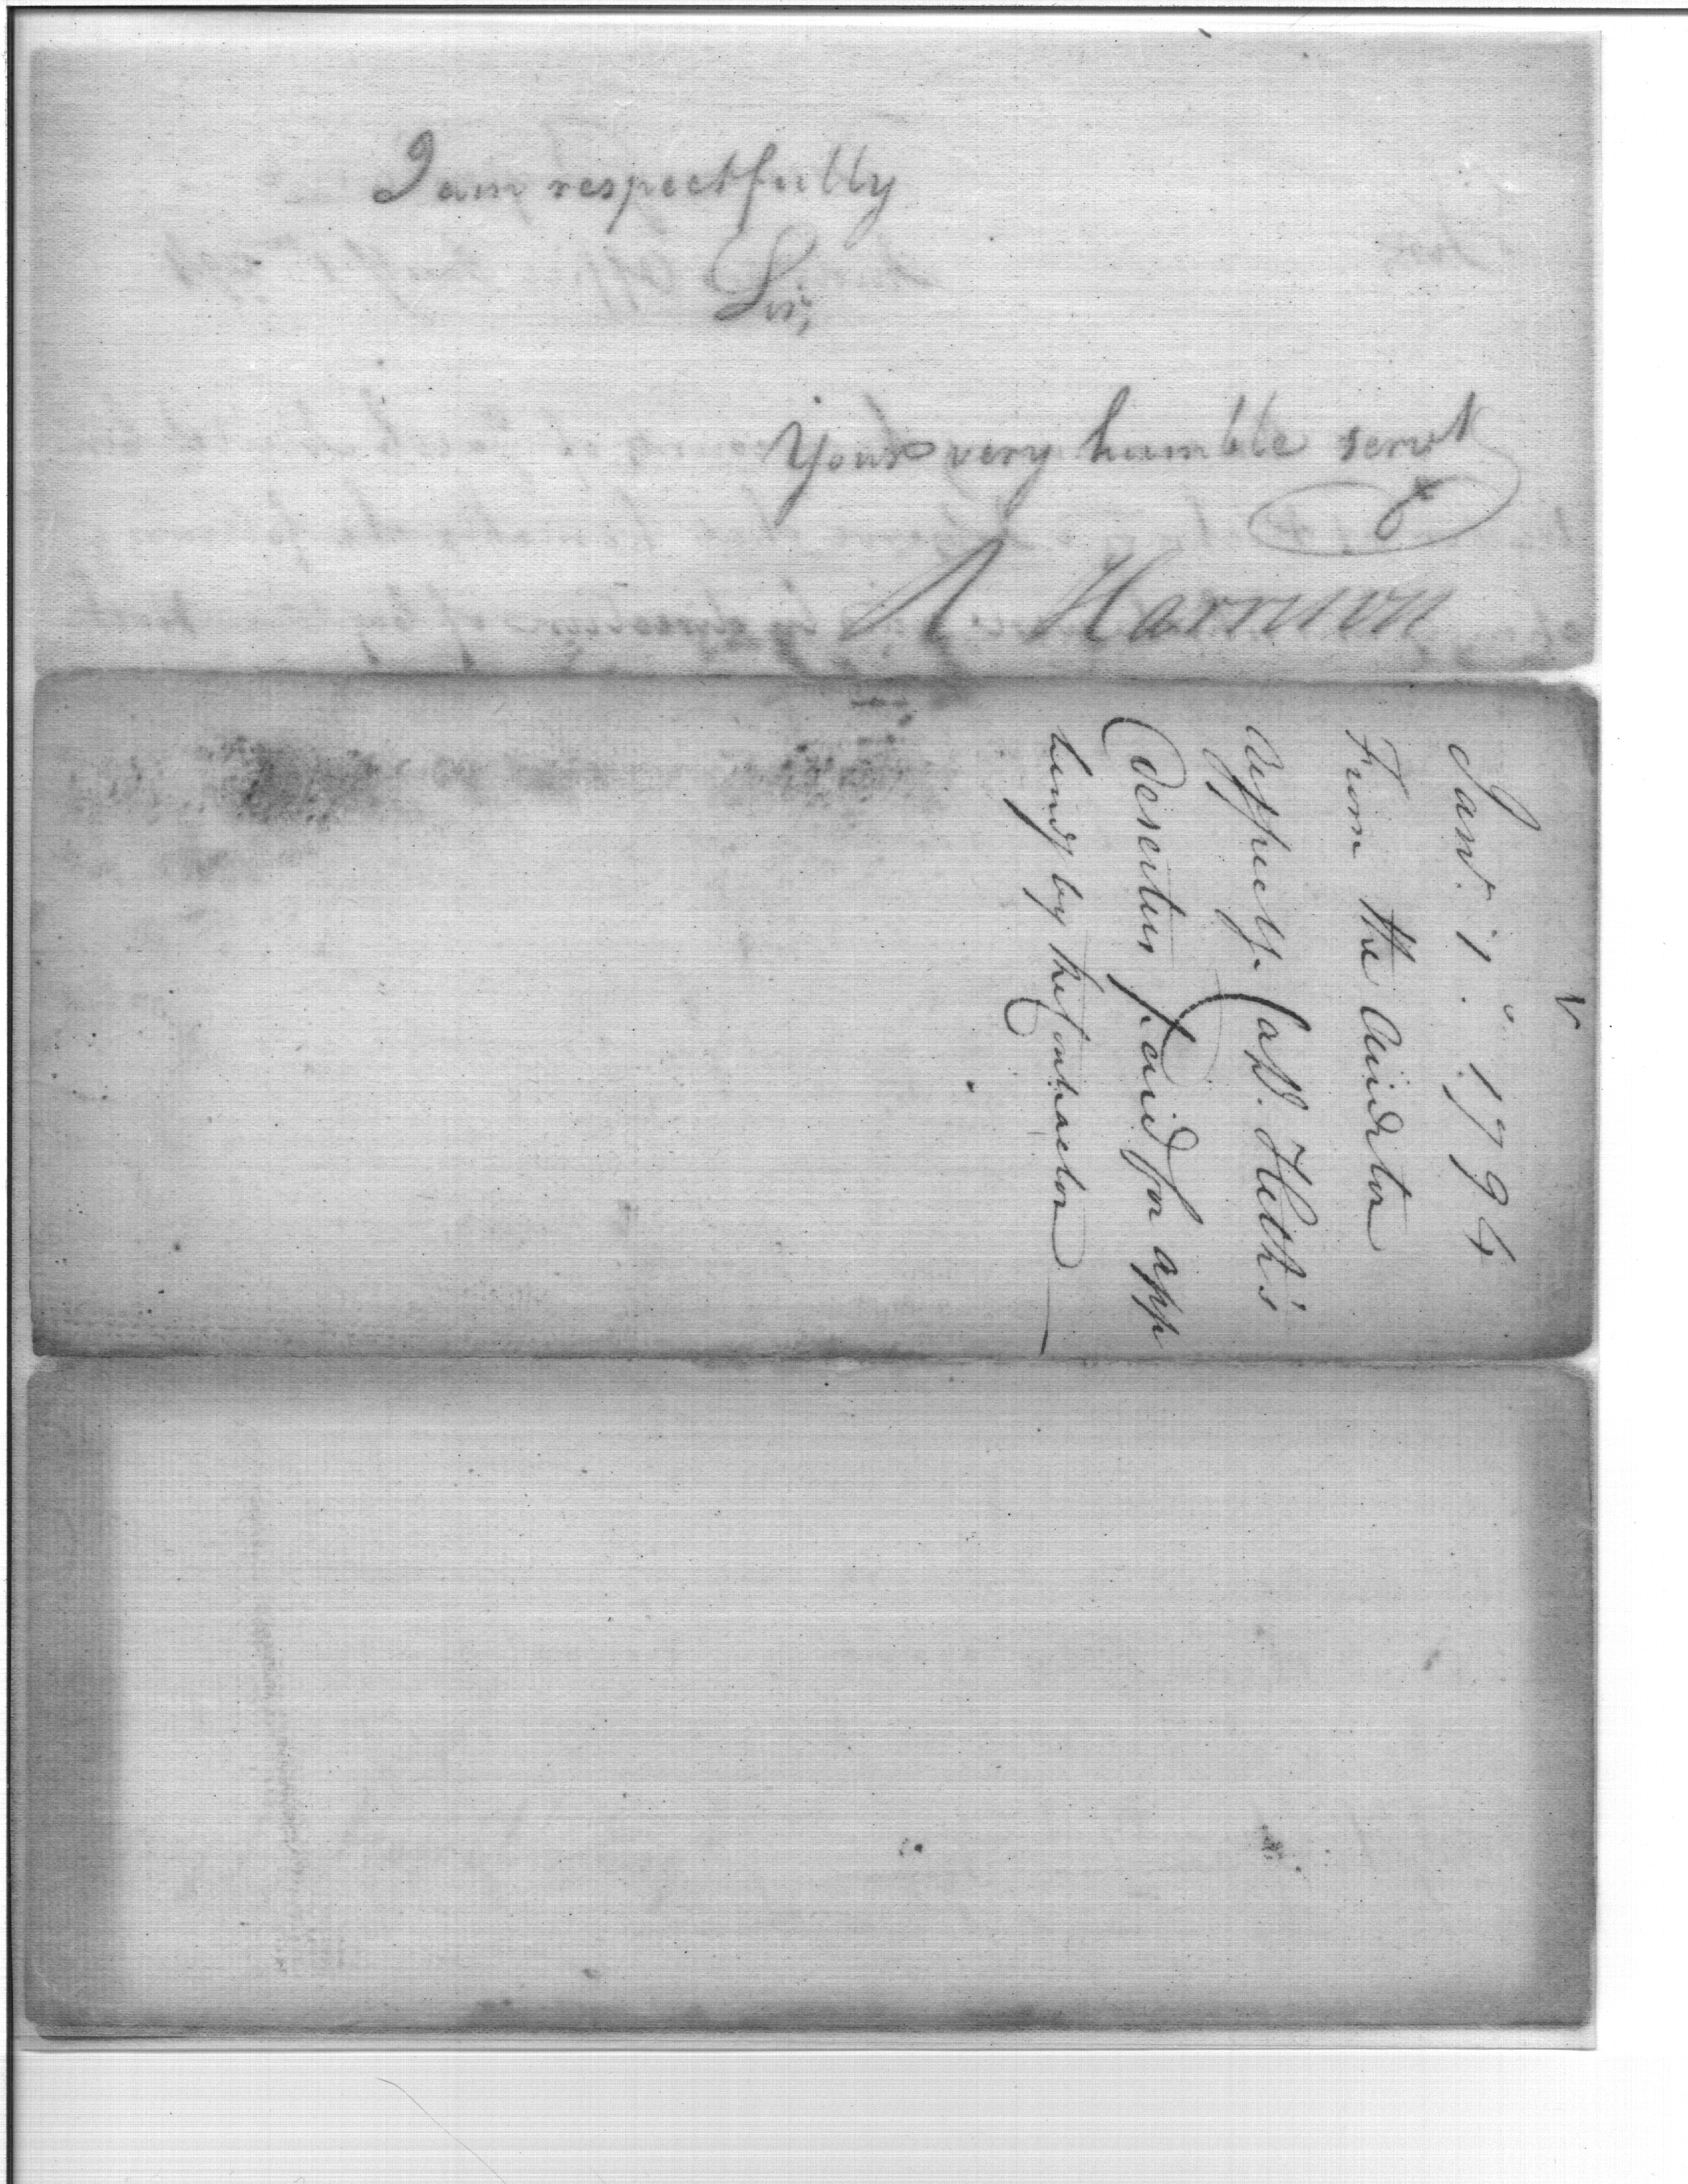 I am respectfully
Sir,
Your very humble servt
R Harrison
Jany. 1. 1794
From the Auditor
Capt. Heth's
Deserters paid for app
hendg by the Contractor